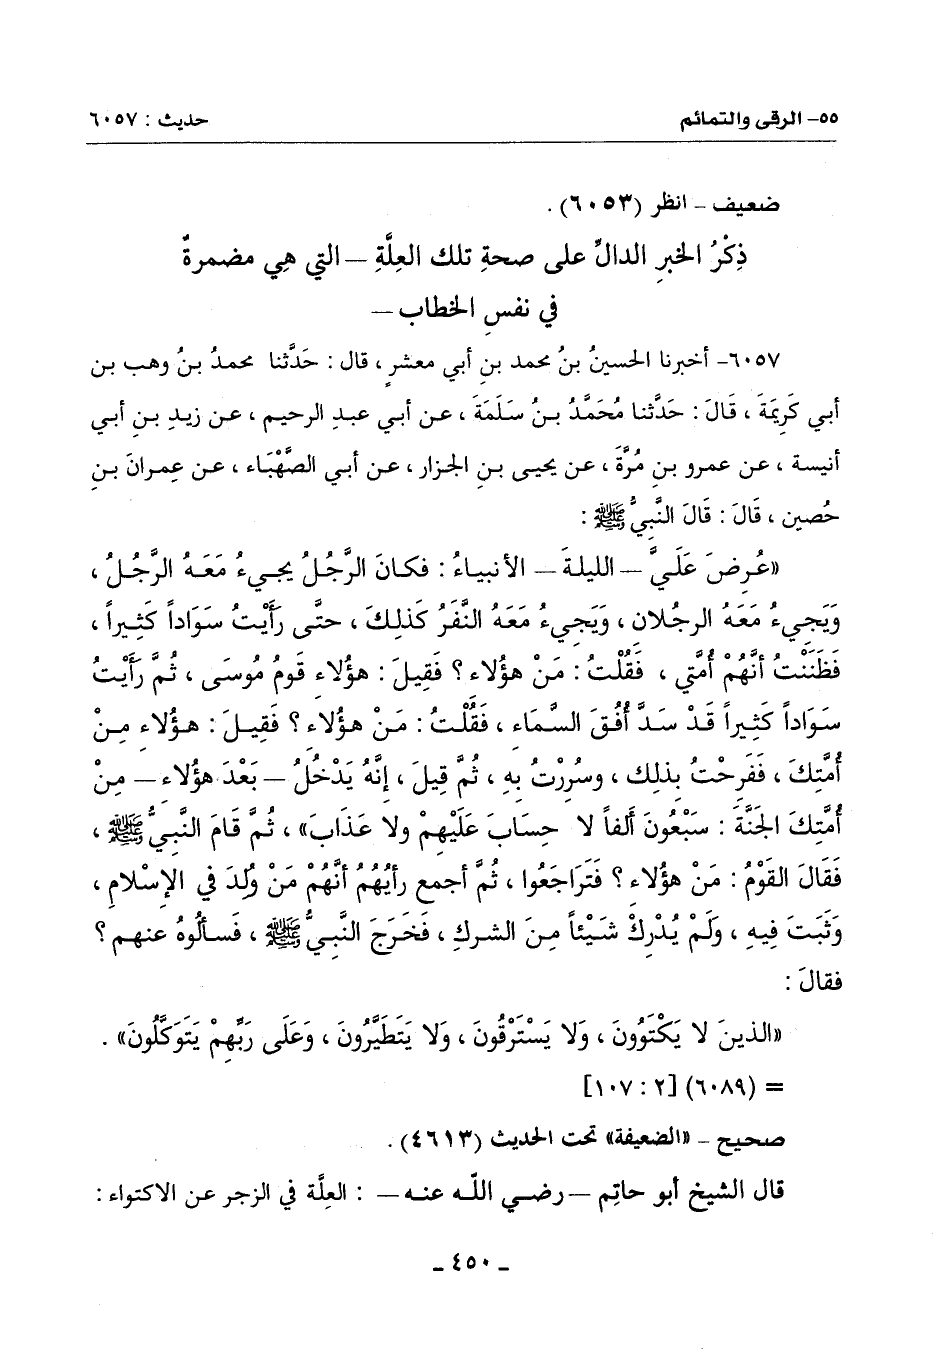 ٥٥- الرقى والتمائم حديث : ٦٠٥٧
ضعيف - انظر (٦٠٥٣) .
ذِكْرُ الخبرِ الدالِّ على صحةِ تلك العِلَّةِ – التي هِي مضمرةٌ
في نفسِ الخطاب –
٦٠٥٧- أخبرنا الحسينُ بنُ محمد بنِ أبي معشرٍ ، قال : حَدَّثنا محمدُ بنُ وهب بنِ
أبي كَرِيمَةَ ، قَالَ : حَدَّثنا مُحَمَّدُ بنُ سَلَمَةَ ، عن أبي عبدِ الرحيم ، عن زيدِ بنِ أبي
أنيسة ، عن عمرو بنِ مُرَّةَ ، عن يحيى بنِ الجزار ، عن أبي الصَّهْبَاء ، عن عمرانَ بنِ
حُصين ، قَالَ : قَالَ النَّبيُّ ﷺ :
«عُرِضَ عَلَيَّ – الليلةَ – الأنبياءُ : فكانَ الرَّجُلُ يجيءُ مَعَهُ الرَّجُلُ ،
وَيَجيءُ مَعَهُ الرجلان ، وَيَجيءُ مَعَهُ النَّفَرُ كَذلِكَ ، حتَّى رَأَيْتُ سَوَاداً كَثيراً ،
فَظَنَنْتُ أنَّهُمْ أُمَّتي ، فَقُلْتُ : مَنْ هؤُلاءِ ؟ فَقِيلَ : هؤُلاءِ قَومُ مُوسَى ، ثُمَّ رَأَيْتُ
سَوَاداً كَثِيراً قَدْ سَدَّ أُفُقَ السَّمَاءِ ، فَقُلْتُ : مَنْ هؤُلاءِ ؟ فَقِيلَ : هؤُلاءِ مِنْ
أُمَّتِكَ ، فَفَرِحْتُ بذلِك ، وسُرِرْتُ بهِ ، ثُمَّ قِيلَ ، إنَّهُ يَدْخُلُ – بَعْدَ هؤُلاءِ – مِنْ
أُمَّتِكَ الجَنَّةَ : سَبْعُونَ ألفاً لا حِسَابَ عَلَيْهِمْ ولا عَذَابَ» ، ثُمَّ قَامَ النَّبيُّ ﷺ ،
فَقَالَ القَوْمُ : مَنْ هؤُلاءِ ؟ فَتَرَاجَعُوا ، ثُمَّ أجمع رأيُهُمْ أنَّهُمْ مَنْ وُلِدَ في الإسْلامِ ،
وَثَبَتَ فِيهِ ، وَلَمْ يُدْرِكْ شَيْئاً مِنَ الشركِ ، فَخَرَجَ النَّبيُّ ﷺ ، فَسألُوهُ عنهم ؟
فقالَ :
«الذينَ لا يَكْتَوُونَ ، وَلا يَسْتَرْقُونَ ، وَلا يَتَطَيَّرُونَ ، وَعَلَى رَبِّهِمْ يَتَوَكَّلُونَ» .
= (٦٠٨٩) [٢ : ١٠٧]
صحيح - «الضعيفة» تحت الحديث (٤٦١٣) .
قال الشيخ أبو حاتِم – رضي اللّه عنه – : العلَّة في الزجر عن الاكتواء :
- ٤٥٠ -